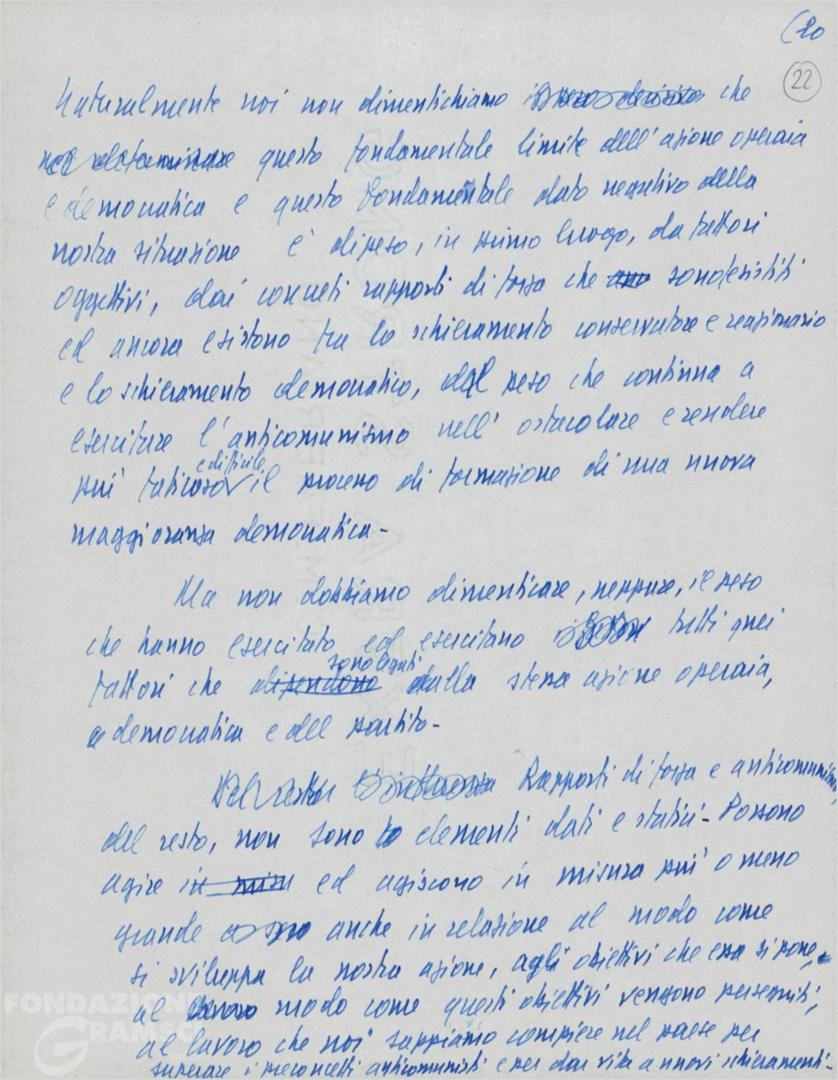 (20
22
Naturalmente noi non dimentichiamo che
questo fondamentale limite dell'azione operaia
e democratica e questo fondamentale dato negativo della
nostra situazione è dipeso, in primo luogo, da fattori
oggettivi, dai concreti rapporti di forza che sono esistiti
ed ancora esistono tra lo schieramento conservatore e reazionario
e lo schieramento democratico, dal peso che continua a
esercitare l'anticomunismo nell'ostacolare e rendere
e difficile
più faticoso il processo di formazione di una nuova
maggioranza democratica -
Ma non dobbiamo dimenticare, neppure, il peso
che hanno esercitato ed esercitano tutti quei
sono legati
fattori che dipendono dalla stessa azione operaia,
e democratica e del partito -
Del resto Rapporti di forza e anticomunismo,
del resto, non sono elementi dati e statici - Possono
agire in misu ed agiscono in misura più o meno
grande anche in relazione al modo come
si sviluppa la nostra azione, agli obiettivi che essa si pone,
al modo come questi obiettivi vengono perseguiti,
al lavoro che noi sappiamo compiere nel paese per
superare i preconcetti anticomunisti e per dar vita a nuovi schieramenti -
FONDAZIONE
GRAMSCI